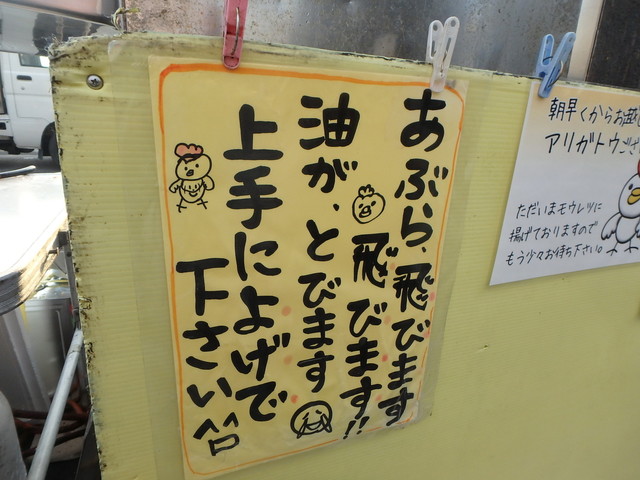 あぶら、飛びます
飛びます!!
油が、とびます
上手によけて
下さい^^
朝早くからお越し
アリガトウござ
ただいまモウレツに
揚げておりますので
もう少々お待ち下さい。